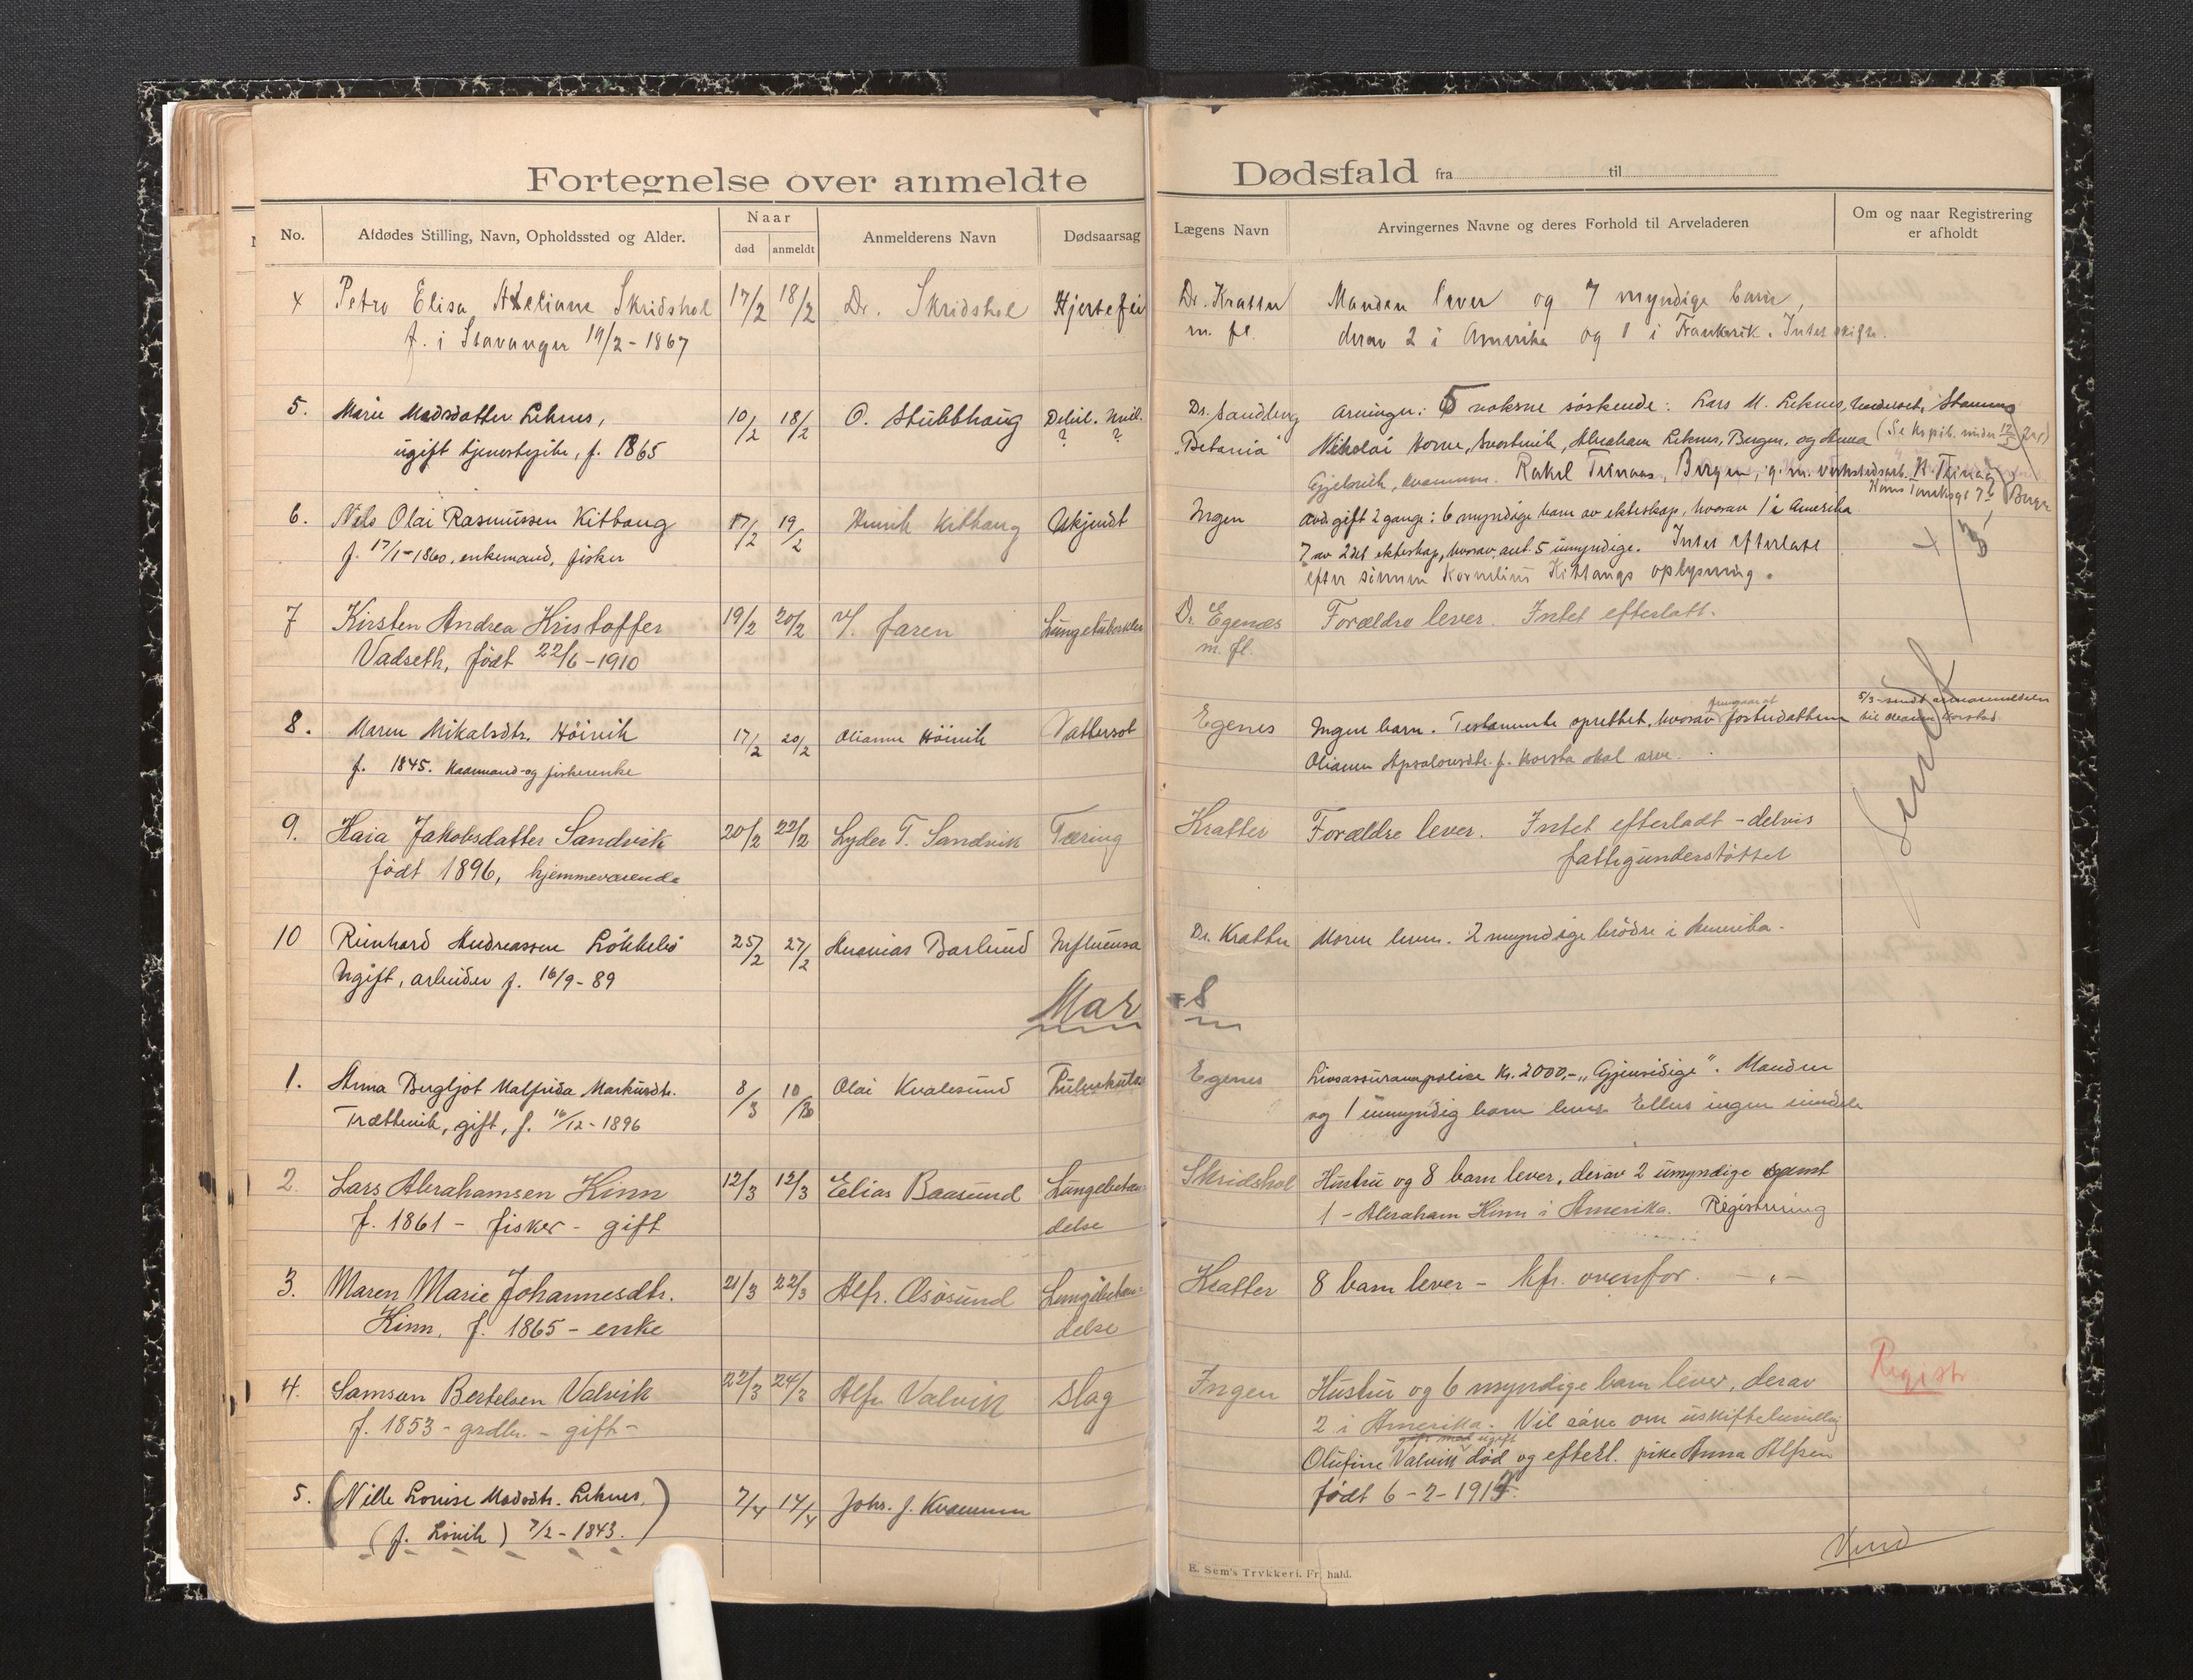 Fortegnelse over anmeldte Dødsfald fra til
No.
Afdødes Stilling, Navn, Opholdssted og Alder.
Naar
død
anmeldt
Anmelderens Navn
Dødsaarsag
Lægens Navn
Arvingernes Navne og deres Forhold til Arveladeren
Om og naar Registrering
er afholdt
4 Petra Elisa Skridshol 17/2 18/2 Dr. Skridshol Hjertefeil Dr. Kratter Manden lever og 7 myndige barn,
f. i Stavanger 19/2 - 1867 m. fl. derav 2 i Amerika og 1 i Frankrik. Intet skifte.
5. Marie Madsdatter Leknes, 10/2 18/2 O. Stubbhaug Debil. Dr. Sandberg Arvinger: 5 voksne søskende: Lars M. Leknes,
ugift tjenestepike, f. 1865 ? ? "Betania" Nikolai Svortevik, Abraham Leknes, Bergen, og Anna
Gjelsvik, Kvammen. Rakel Teinaas, Bergen, g. m.
6. Nils Olai Rasmussen Kitbang 17/2 19/2 Henrik Kitbang Ukjendt Ingen Avd. gift 2 gange: 6 myndige barn av ekteskap, hvorav 1 i Amerika
f. 17/1 - 1860, enkemand, fisker 7 av 2det ekteskap, hvorav ant. 5 umyndige. Intet efterlatt
efter sønnen Kornelius Kittangs oplysning.
7 Kirsten Andrea Kristoffer 19/2 20/2 v/. faren Lungetuberkler Dr. Egenæs Forældre lever. Intet efterlatt.
Vadseth, født 22/6 - 1910 m. fl.
8. Maren Mikalsdtr. Høivik 17/2 20/2 Olianne Høivik Vattersot Egenes Ingen barn. Testamente oprettet, hvorav fosterdatteren
f. 1845. Kaarmand- og fiskerenke Olianne Apsalonsdtr. f. Korsta skal arve.
Sendt
9. Kaia Jakobsdatter Sandvik 20/2 22/2 Lyder T. Sandvik Tæring Kratter Forældre lever. Intet efterladt - delvis
født 1896, hjemmeværende fattigunderstøttet
10 Reinhard Andreassen Løkkebø 25/2 27/2 Ananias Barlund Influensa Dr. Kratter Moren lever. 2 myndige brødre i Amerika.
Ugift, arbeider f. 16/9 - 89
Mars
1. Anna Bergljot Malfrida Markusdtr. 8/3 10/3 Olai Kvalesund Egenes Livsassurancepolice Kr. 2000,- "Gjensidige". Manden
Trættevik, gift, f. 16/12 - 1896 og 1 umyndig barn lever. Ellers ingen
2. Lars Abrahamsen Kinn 12/3 12/3 Elias Baasund Lungebetæn- Skridshol Hustru og 8 barn lever, derav 2 umyndige samt
f. 1861 - fisker - gift delse 1 - Abraham Kinn i Amerika. Registrering
3. Maren Marie Johannesdtr. 21/3 22/3 Alfr. Osøsund Lungebetæn= Kratter 8 barn lever - kfr. ovenfor. - " -
Kinn, f. 1865 - enke delse
4. Samson Bertelsen Valvik 22/3 24/3 Alfr. Valvik Slag Ingen Hustru og 6 myndige barn lever, derav Registr
f. 1853 - grdbr. - gift - 2 i Amerika. Vil søke om uskiftebevilling
ugift
Olufine Valvik død og efterl. pike Anna Alfsen
født 6 - 2 - 1917.
5. (Nille Lovise Madsdtr. Leknes, 7/4 14/4 Johs. J. Kvammen
(f. Løvik) 7/2 - 1843.)
Vend
E. Sem's Trykkeri, Fr.hald.